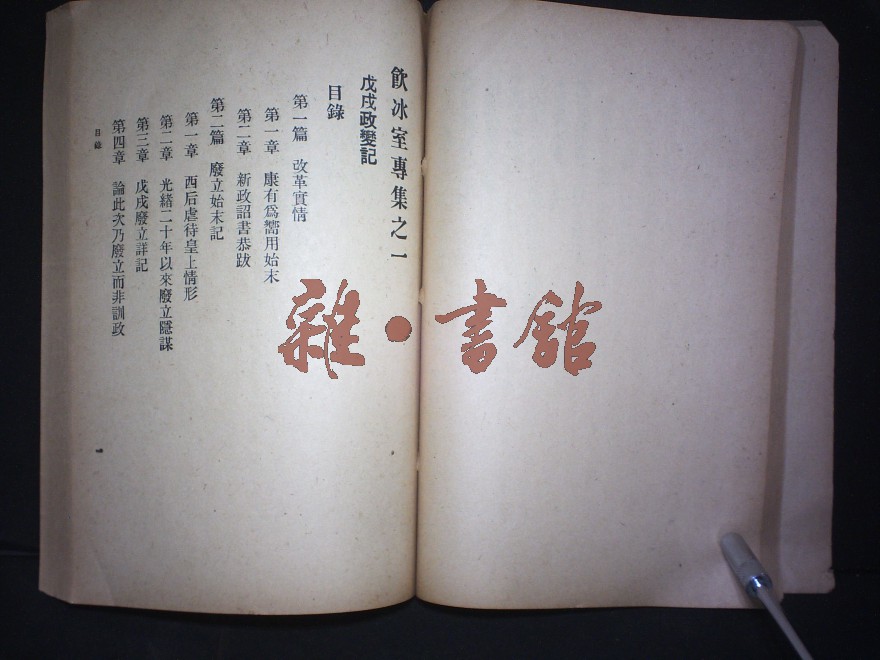 飲冰室專集之一
戊戌政變記
目錄
第一篇 改革實情
第一章 康有爲嚮用始末
第二章 新政詔書恭跋
第二篇 廢立始末記
第一章 西后虐待皇上情形
第二章 光緒二十年以來廢立隱謀
第三章 戊戌廢立詳記
第四章 論此次乃廢立而非訓政
目錄
一
雜·書館